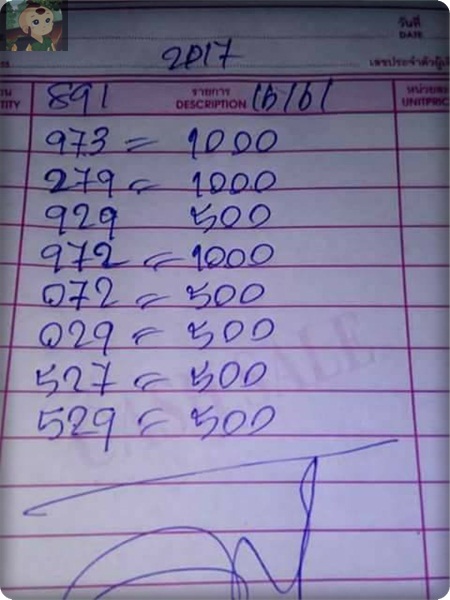 วันที่
DATE
2017
เลขประจำตัวผู้เสี
891 รายการ หน่วยละ
TITY DESCRIPTION 16/6/ UNITPRIC
973 = 1000
279 = 1000
929 500
972 = 1000
072 = 500
029 = 500
527 = 500
529 = 500
CASH SALE